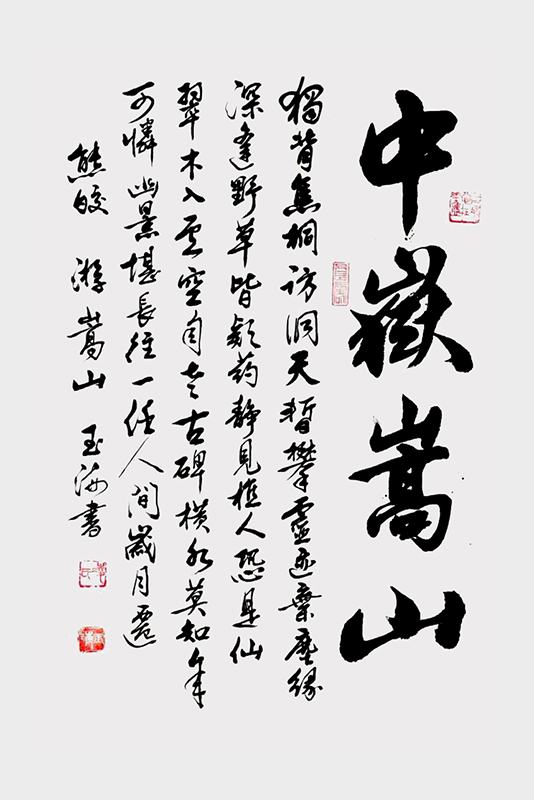 中嶽嵩山
獨背焦桐访洞天暫攀靈迹棄塵緣
深逢野草皆疑药静見樵人恐是仙
翠木入雲空自老古碑横水莫知年
可憐幽景堪長往一任人間歲月遷
熊皎 游嵩山 玉書